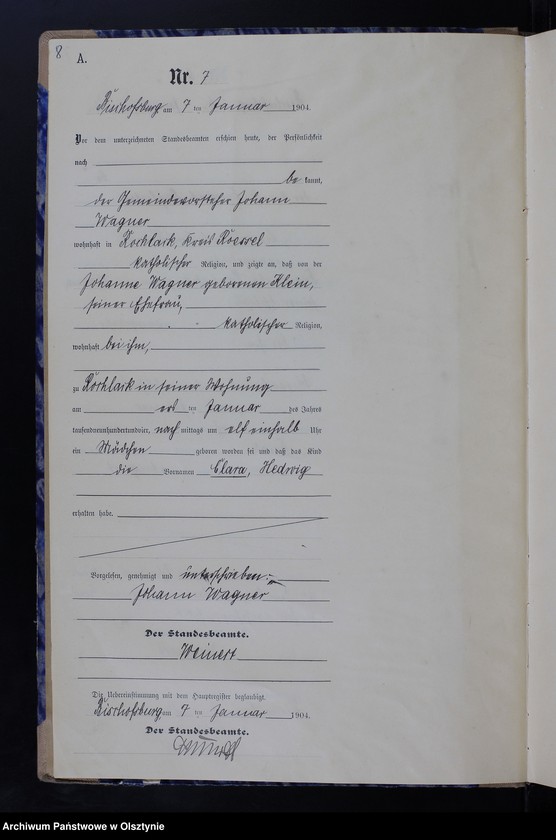 8
A.
Nr. 7
Bischofsburg am 7 ten Januar 1904.
Vor dem unterzeichneten Standesbeamten erschien heute, der Persönlichkeit
nach
be kannt,
der Gemeindevorsteher Johann
Wagner
wohnhaft in Rochlack, Kreis Roessel
katholischer Religion, und zeigte an, daß von der
Johanne Wagner geborenen Klein,
seiner Ehefrau,
katholischer Religion,
wohnhaft bei ihm,
zu Rochlack in seiner Wohnung
am ten Januar des Jahres
tausendneunhundertundvier, nach mittags um elf einhalb Uhr
ein Mädchen geboren worden sei und daß das Kind
die Vornamen Clara, Hedwig
erhalten habe.
Vorgelesen, genehmigt und unterschrieben:
Johann Wagner
Der Standesbeamte.
Weinert
Die Uebereinstimmung mit dem Hauptregister beglaubigt.
Bischofsburg am 7 ten Januar 1904.
Der Standesbeamte.
Archiwum Państwowe w Olsztynie